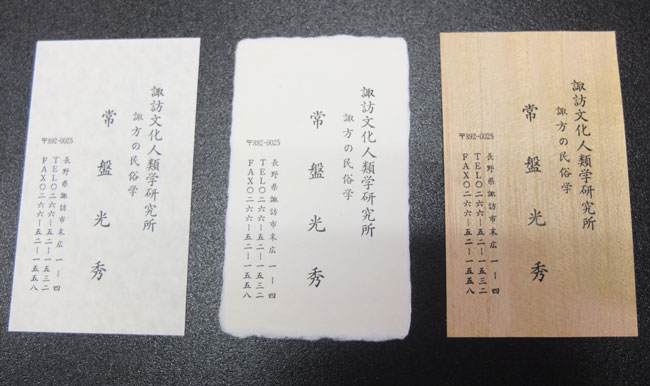 諏訪文化人類学研究所
諏方の民俗学
常盤光秀
〒392-0025
長野県諏訪市末広 一ー四
TEL〇二六六ー五二ー一五三二
FAX〇二六六ー五二ー一五五八
諏訪文化人類学研究所
諏方の民俗学
常盤光秀
〒392-0025
長野県諏訪市末広 一ー四
TEL〇二六六ー五二ー一五三二
FAX〇二六六ー五二ー一五五八
諏訪文化人類学研究所
諏方の民俗学
常盤光秀
〒392-0025
長野県諏訪市末広 一ー四
TEL〇二六六ー五二ー一五三二
FAX〇二六六ー五二ー一五五八